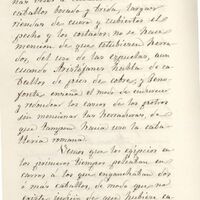 caballo bocado y brida, largas
riendas de cuero y cubiertos el
pecho y los costados: no se hace
mencion de que estubiesen herra-
dos, del uso de las espuelas, aun
cuando Aristófanes habla de ca-
ballos de pies de cobre, y Jeno-
fonte enseña el modo de endurecer
y redondear los cascos de los potros
sin mencionar las herraduras de
que tampoco hacia uso la caba-
lleria romana.
Vemos que los egipcios en
los primeros tiempos peleaban en
carros a los que enganchaban dos
ó mas caballos, de modo que no
existe indicio de que hubiera ca-